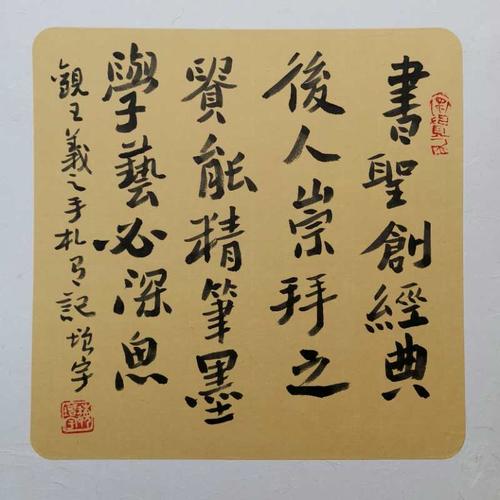 書聖創經典
後人崇拜之
賢能精筆墨
學藝必深思
觀王羲之手札有記 增宇